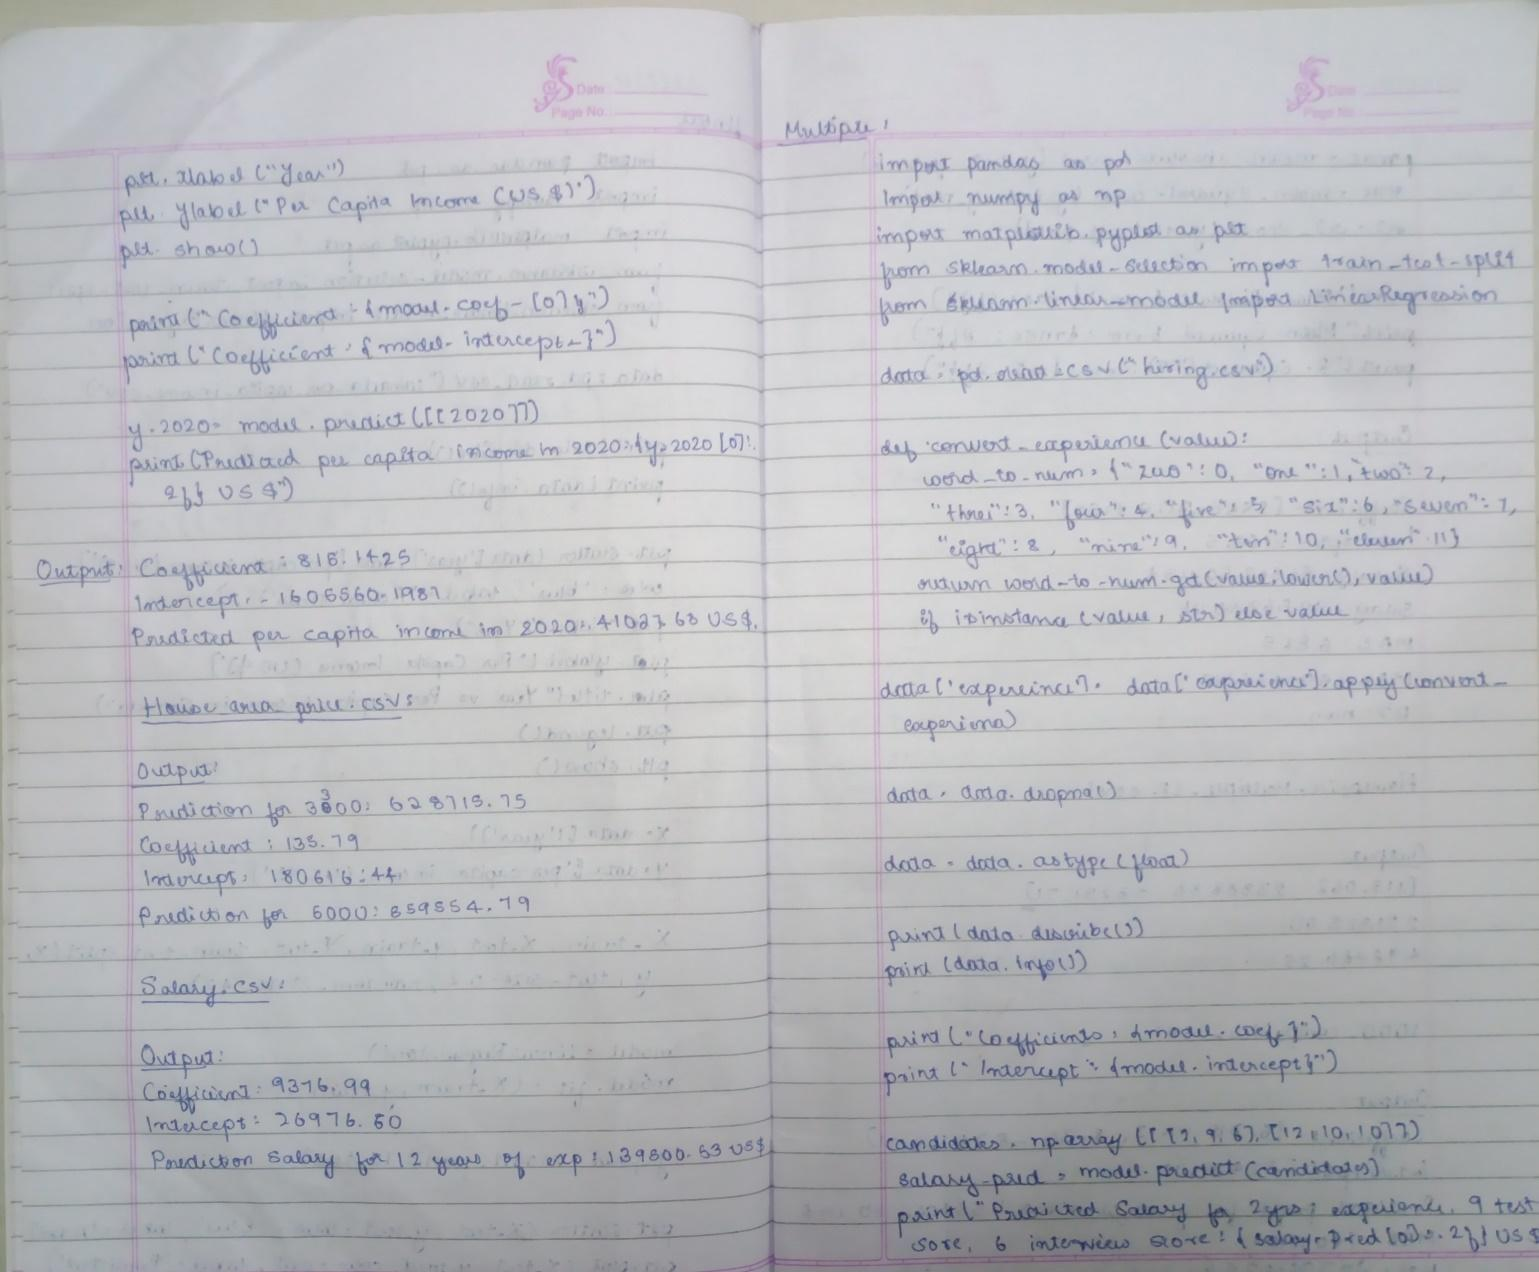 Date
Page No.
plt. xlabel ("Year")
plt. ylabel ("Per Capita Income (US $)")
plt. show()
print ("Coefficient : {model. coef_[0]}")
print ("Coefficient : {model. intercept_}")
y_2020= model. predict ([[2020]])
print (Predicted per capita income in 2020: {y_2020 [0]:
2f} US $")
Output: Coefficient : 818.1425
Intercept: -1605560.1987
Predicted per capita income in 2020: 41037.63 US$.
House area price. csv:
Output:
Prediction for 3300: 628715.75
Coefficient : 135.79
Intercept: 180616.44
Prediction for 5000: 859554.79
Salary.csv:
Output:
Coefficient: 9376.99
Intercept: 26976.60
Prediction Salary for 12 years of exp: 139500.53 US$
Date
Page No.
Multiple:
import pandas as pd
Import numpy as np
import matplotlib. pyplot as plt
from sklearn. model_selection import train_test_split
from sklearn. linear_model import LinearRegression
data = pd. read_csv ("hiring.csv")
def convert_experience (value):
word_to_num = {"zero": 0, "one": 1, "two": 2,
"three": 3, "four": 4, "five": 5, "six": 6, "seven": 7,
"eight": 8, "nine": 9, "ten": 10, "eleven" 11}
return word_to_num.get(value.lower(), value)
if isinstance (value, str) else value
data ['expereince'] = data ['experience']. apply (convert_
experience)
data = data. dropna()
data = data. astype (float)
print (data. describe())
print (data. info())
print ("Coefficients : {model. coef_}")
print (" Intercept : {model. intercept}")
candidates = np.array ([[2, 9, 6], [12, 10, 10]])
salary_pred = model. predict (candidates)
print (" Predicted Salary for 2 yrs; experience, 9 test
sore, 6 interview score : {salary_pred [0]:. 2f} US $